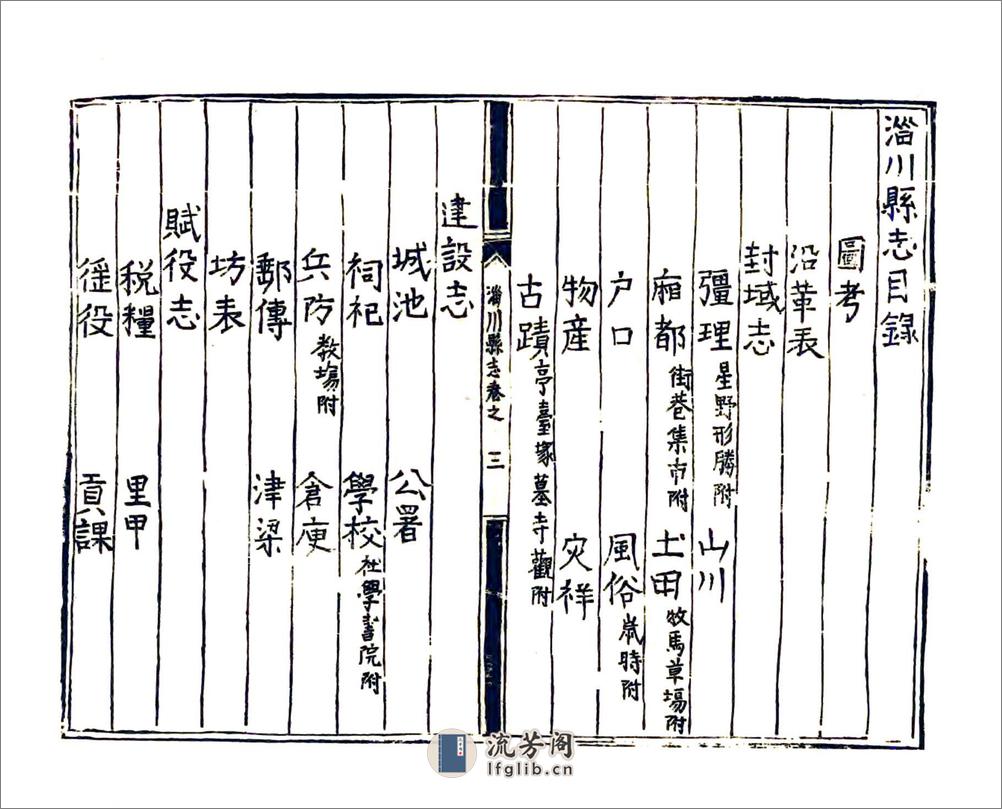 淄川縣志目錄
圖考
沿革表
封域志
彊理 星野形勝附 山川
廂都 街巷集市附 土田 牧馬草場附
户口 風俗 歲時附
物産 灾祥
古蹟 亭臺塚墓寺觀附
淄川縣志卷之 三
建設志
城池 公署
祠祀 學校 社學書院附
兵防 教場附 倉庾
郵傳 津梁
坊表
賦役志
税糧 里甲
徭役 貢課
流芳阁
lfglib.cn